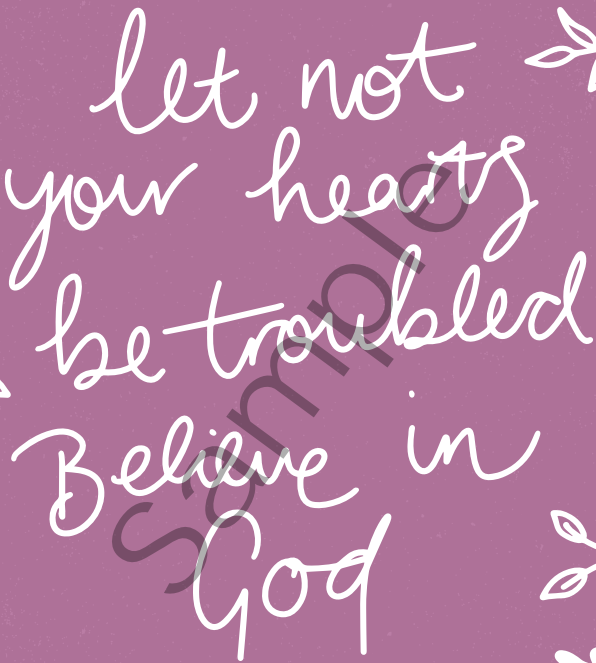 let not
your hearts
be troubled
Believe in
God
Sample